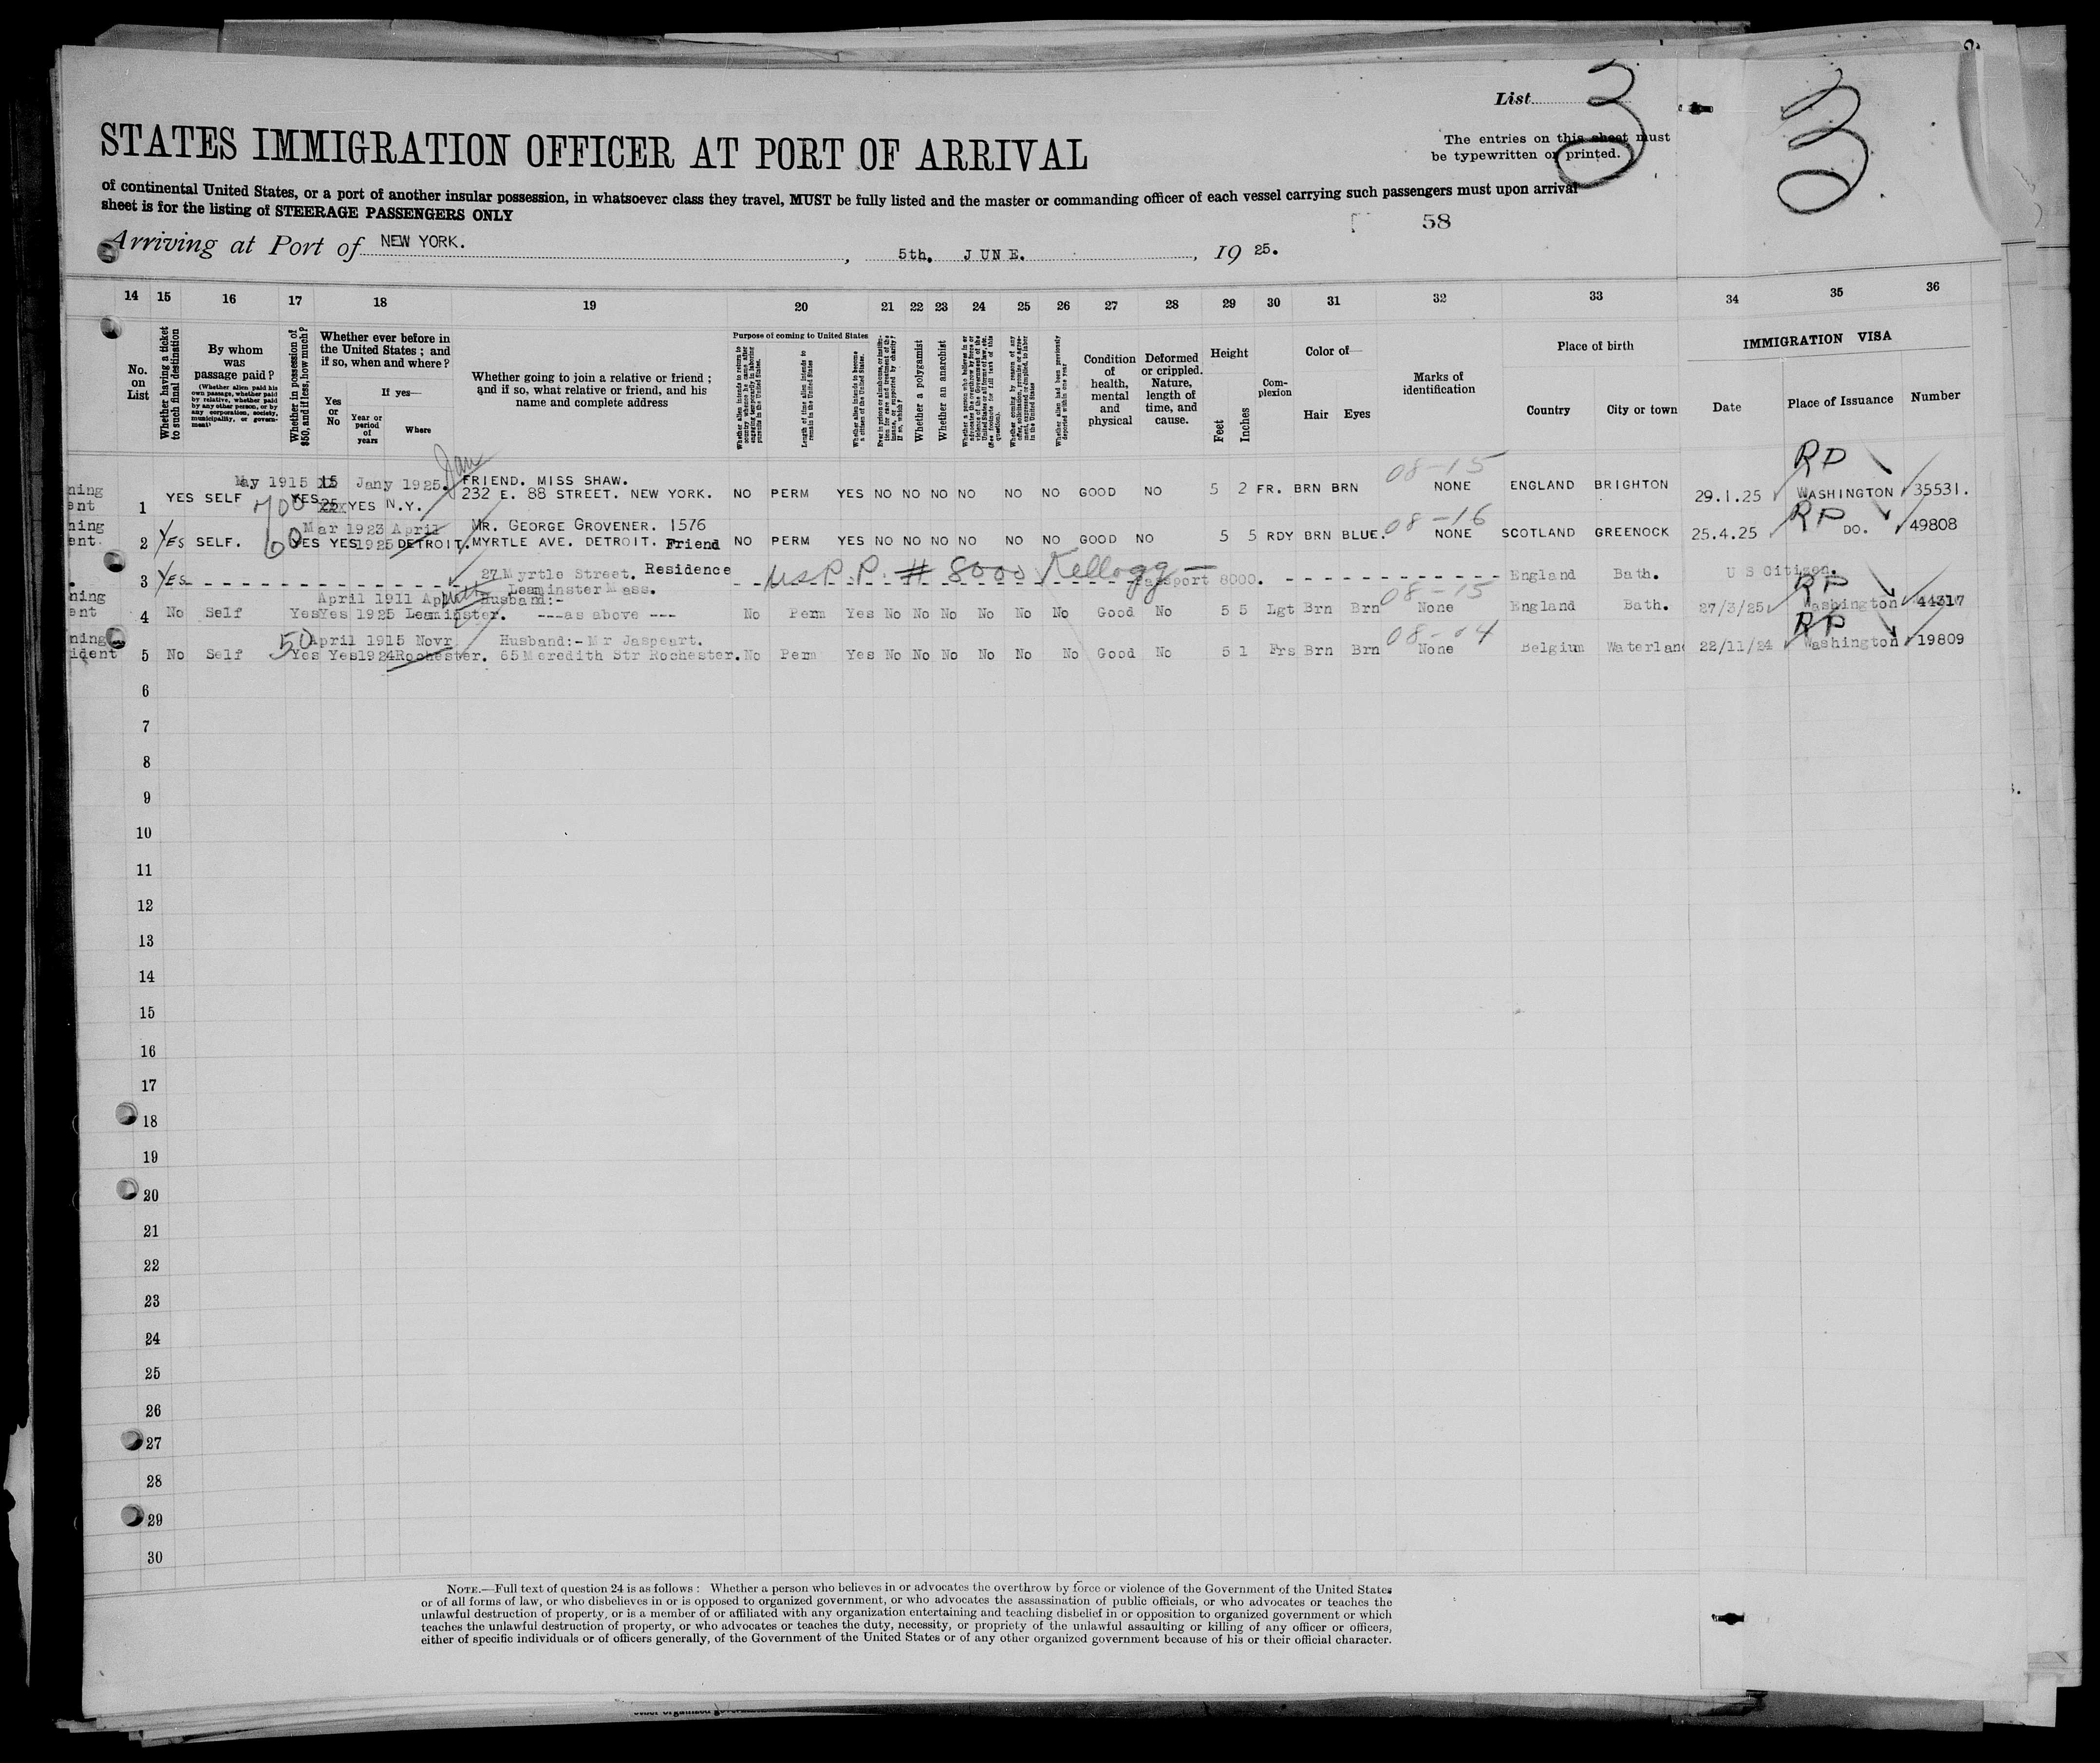 List 3
STATES IMMIGRATION OFFICER AT PORT OF ARRIVAL
The entries on this sheet must
be typewritten or printed.
3
of continental United States, or a port of another insular possession, in whatsoever class they travel, MUST be fully listed and the master or commanding officer of each vessel carrying such passengers must upon arrival
sheet is for the listing of STEERAGE PASSENGERS ONLY
58
Arriving at Port of NEW YORK. , 5th, JUNE. , 19 25.
14 15 16 17 18 19 20 21 22 23 24 25 26 27 28 29 30 31 32 33 34 35 36
No. on List
Whether having a ticket to such final destination
By whom was passage paid?
(Whether alien paid his own passage, whether paid by relative, whether paid by any other person, or by any corporation, society, municipality, or government)
Whether in possession of $50, and if less, how much?
Whether ever before in the United States; and if so, when and where?
If yes—
Yes or No
Year or period of years
Where
Whether going to join a relative or friend; and if so, what relative or friend, and his name and complete address
Purpose of coming to United States
Whether alien intends to return to country whence he came after engaging temporarily in laboring pursuits in the United States.
Length of time alien intends to remain in the United States
Whether alien intends to become a citizen of the United States.
Ever in prison or almshouse, or institution for care and treatment of the insane, or supported by charity? If so, which?
Whether a polygamist
Whether an anarchist
Whether a person who believes in or advocates the overthrow by force or violence of the Government of the United States or all forms of law, etc. (See footnote for full text of this question).
Whether coming by reason of any offer, solicitation, promise or agreement, expressed or implied, to labor in the United States
Whether alien had been previously deported within one year
Condition of health, mental and physical
Deformed or crippled. Nature, length of time, and cause.
Height
Feet Inches
Complexion
Color of—
Hair Eyes
Marks of identification
Place of birth
Country City or town
IMMIGRATION VISA
Date Place of Issuance Number
May 1915 15 Jany 1925. Jan FRIEND. MISS SHAW. 08-15 RP
1 YES SELF 700 YES 25 YES N.Y. 232 E. 88 STREET. NEW YORK. NO PERM YES NO NO NO NO NO NO GOOD NO 5 2 FR. BRN BRN NONE ENGLAND BRIGHTON 29.1.25 WASHINGTON 35531.
Mar 1923 April MR. GEORGE GROVENER. 1576 08-16 RP
2 YES SELF. 60 YES YES 1925 DETROIT. MYRTLE AVE. DETROIT. Friend NO PERM YES NO NO NO NO NO NO GOOD NO 5 5 RDY BRN BLUE. NONE SCOTLAND GREENOCK 25.4.25 DO. 49808
3 YES 27 Myrtle Street. Residence U.S.P.P. # 8000 Kellogg — Passport 8000. England Bath. U S Citizen.
Leaminster Mass.
April 1911 Husband:- 08-15 RP
4 No Self Yes Yes 1925 Leaminster. ---as above --- No Perm Yes No No No No No No Good No 5 5 Lgt Brn Brn None England Bath. 27/3/25 Washington 44317
50 April 1915 Novr Husband:- Mr Jaspeart. 08-04 RP
5 No Self Yes Yes 1924 Rochester. 65 Meredith Str Rochester. No Perm Yes No No No No No No Good No 5 1 Frs Brn Brn None Belgium Waterland 22/11/24 Washington 19809
6
7
8
9
10
11
12
13
14
15
16
17
18
19
20
21
22
23
24
25
26
27
28
29
30
NOTE.—Full text of question 24 is as follows: Whether a person who believes in or advocates the overthrow by force or violence of the Government of the United States
or of all forms of law, or who disbelieves in or is opposed to organized government, or who advocates the assassination of public officials, or who advocates or teaches the
unlawful destruction of property, or is a member of or affiliated with any organization entertaining and teaching disbelief in or opposition to organized government or which
teaches the unlawful destruction of property, or who advocates or teaches the duty, necessity, or propriety of the unlawful assaulting or killing of any officer or officers,
either of specific individuals or of officers generally, of the Government of the United States or of any other organized government because of his or their official character.